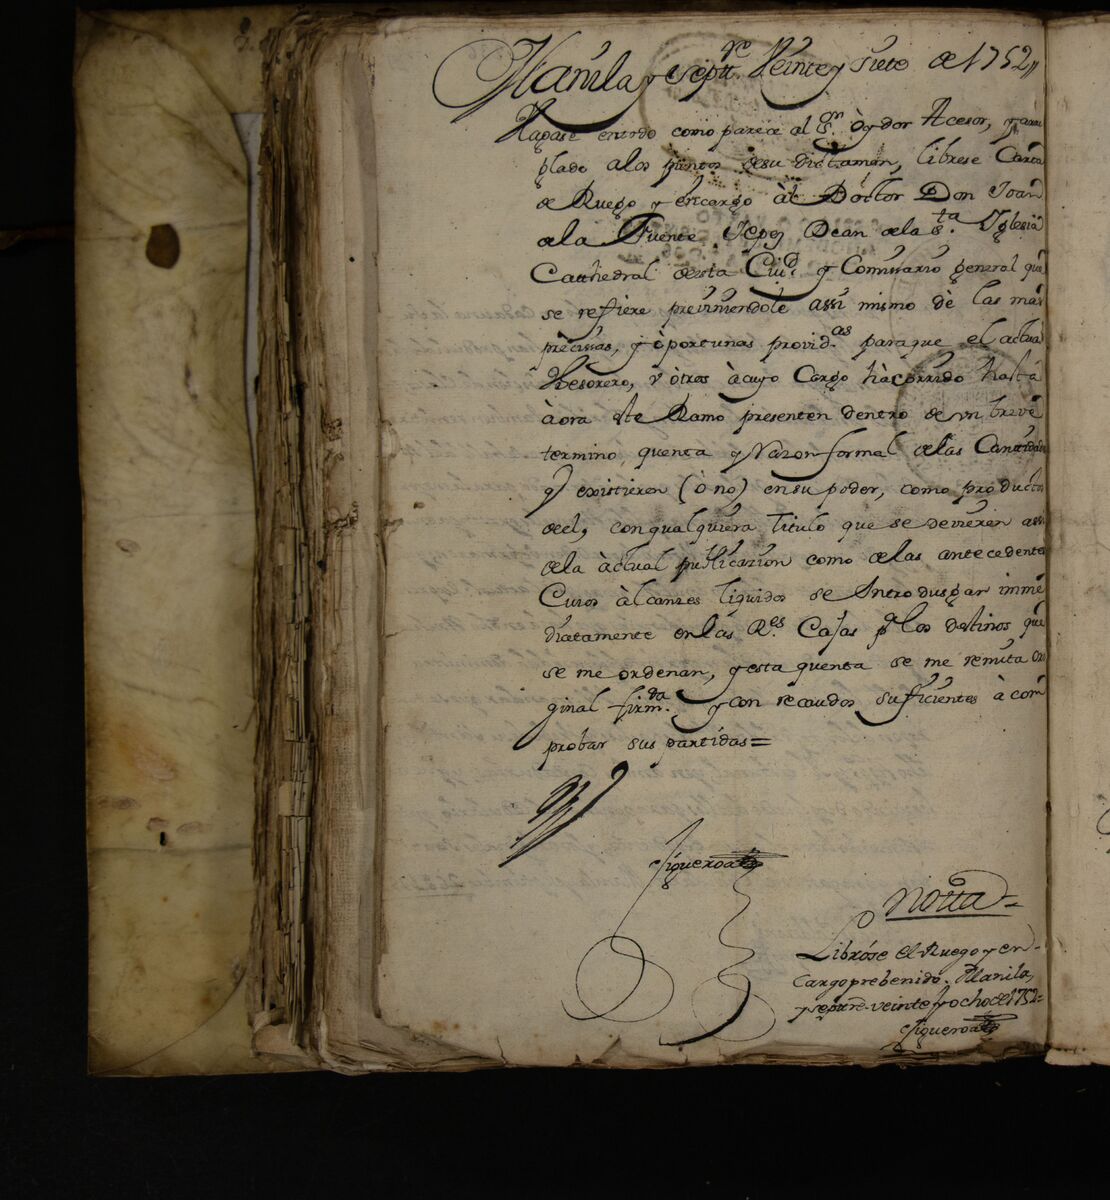 Manila y Septt.re Veinte y Siete de 1752
Hagase en todo como parece al S.or Oydor Acesor, y arre
glado a los puntos de su dictamen, librese Carta
de Ruego y encargo àl Doctor Don Joan
de la Fuente Yepes Dean de la S.ta Yglesia
Cathedral de esta Ciu.d y Comissario general que
se refiere previniendole assi mismo dè las mas
prècissas, y òportunas provid.as para que el actual
thesorero, y òtros à cuyo Cargo hà corrido hasta
àora este Ramo presenten dentro de un breve
termino quenta y Razon formal de las Cantidades
q existieren (ò no) en su poder, como productos
de el, con qualquiera titulo que se devieren assi
de la àctual publicazion como de las antecedentes
Cuios àlcanzes liquidos se Introdusgan imme
diatamente en las R.es Cajas p.a los destinos que
se me ordenan, y esta quenta se me remita ori
ginal firm.da y con recaudos suficientes à com
probar sus partidas =
Figueroa
Notta =
Libróse el Ruego y en
cargo prebenido. Manila,
y sepre. veinte y ocho de 1752 =
Figueroa